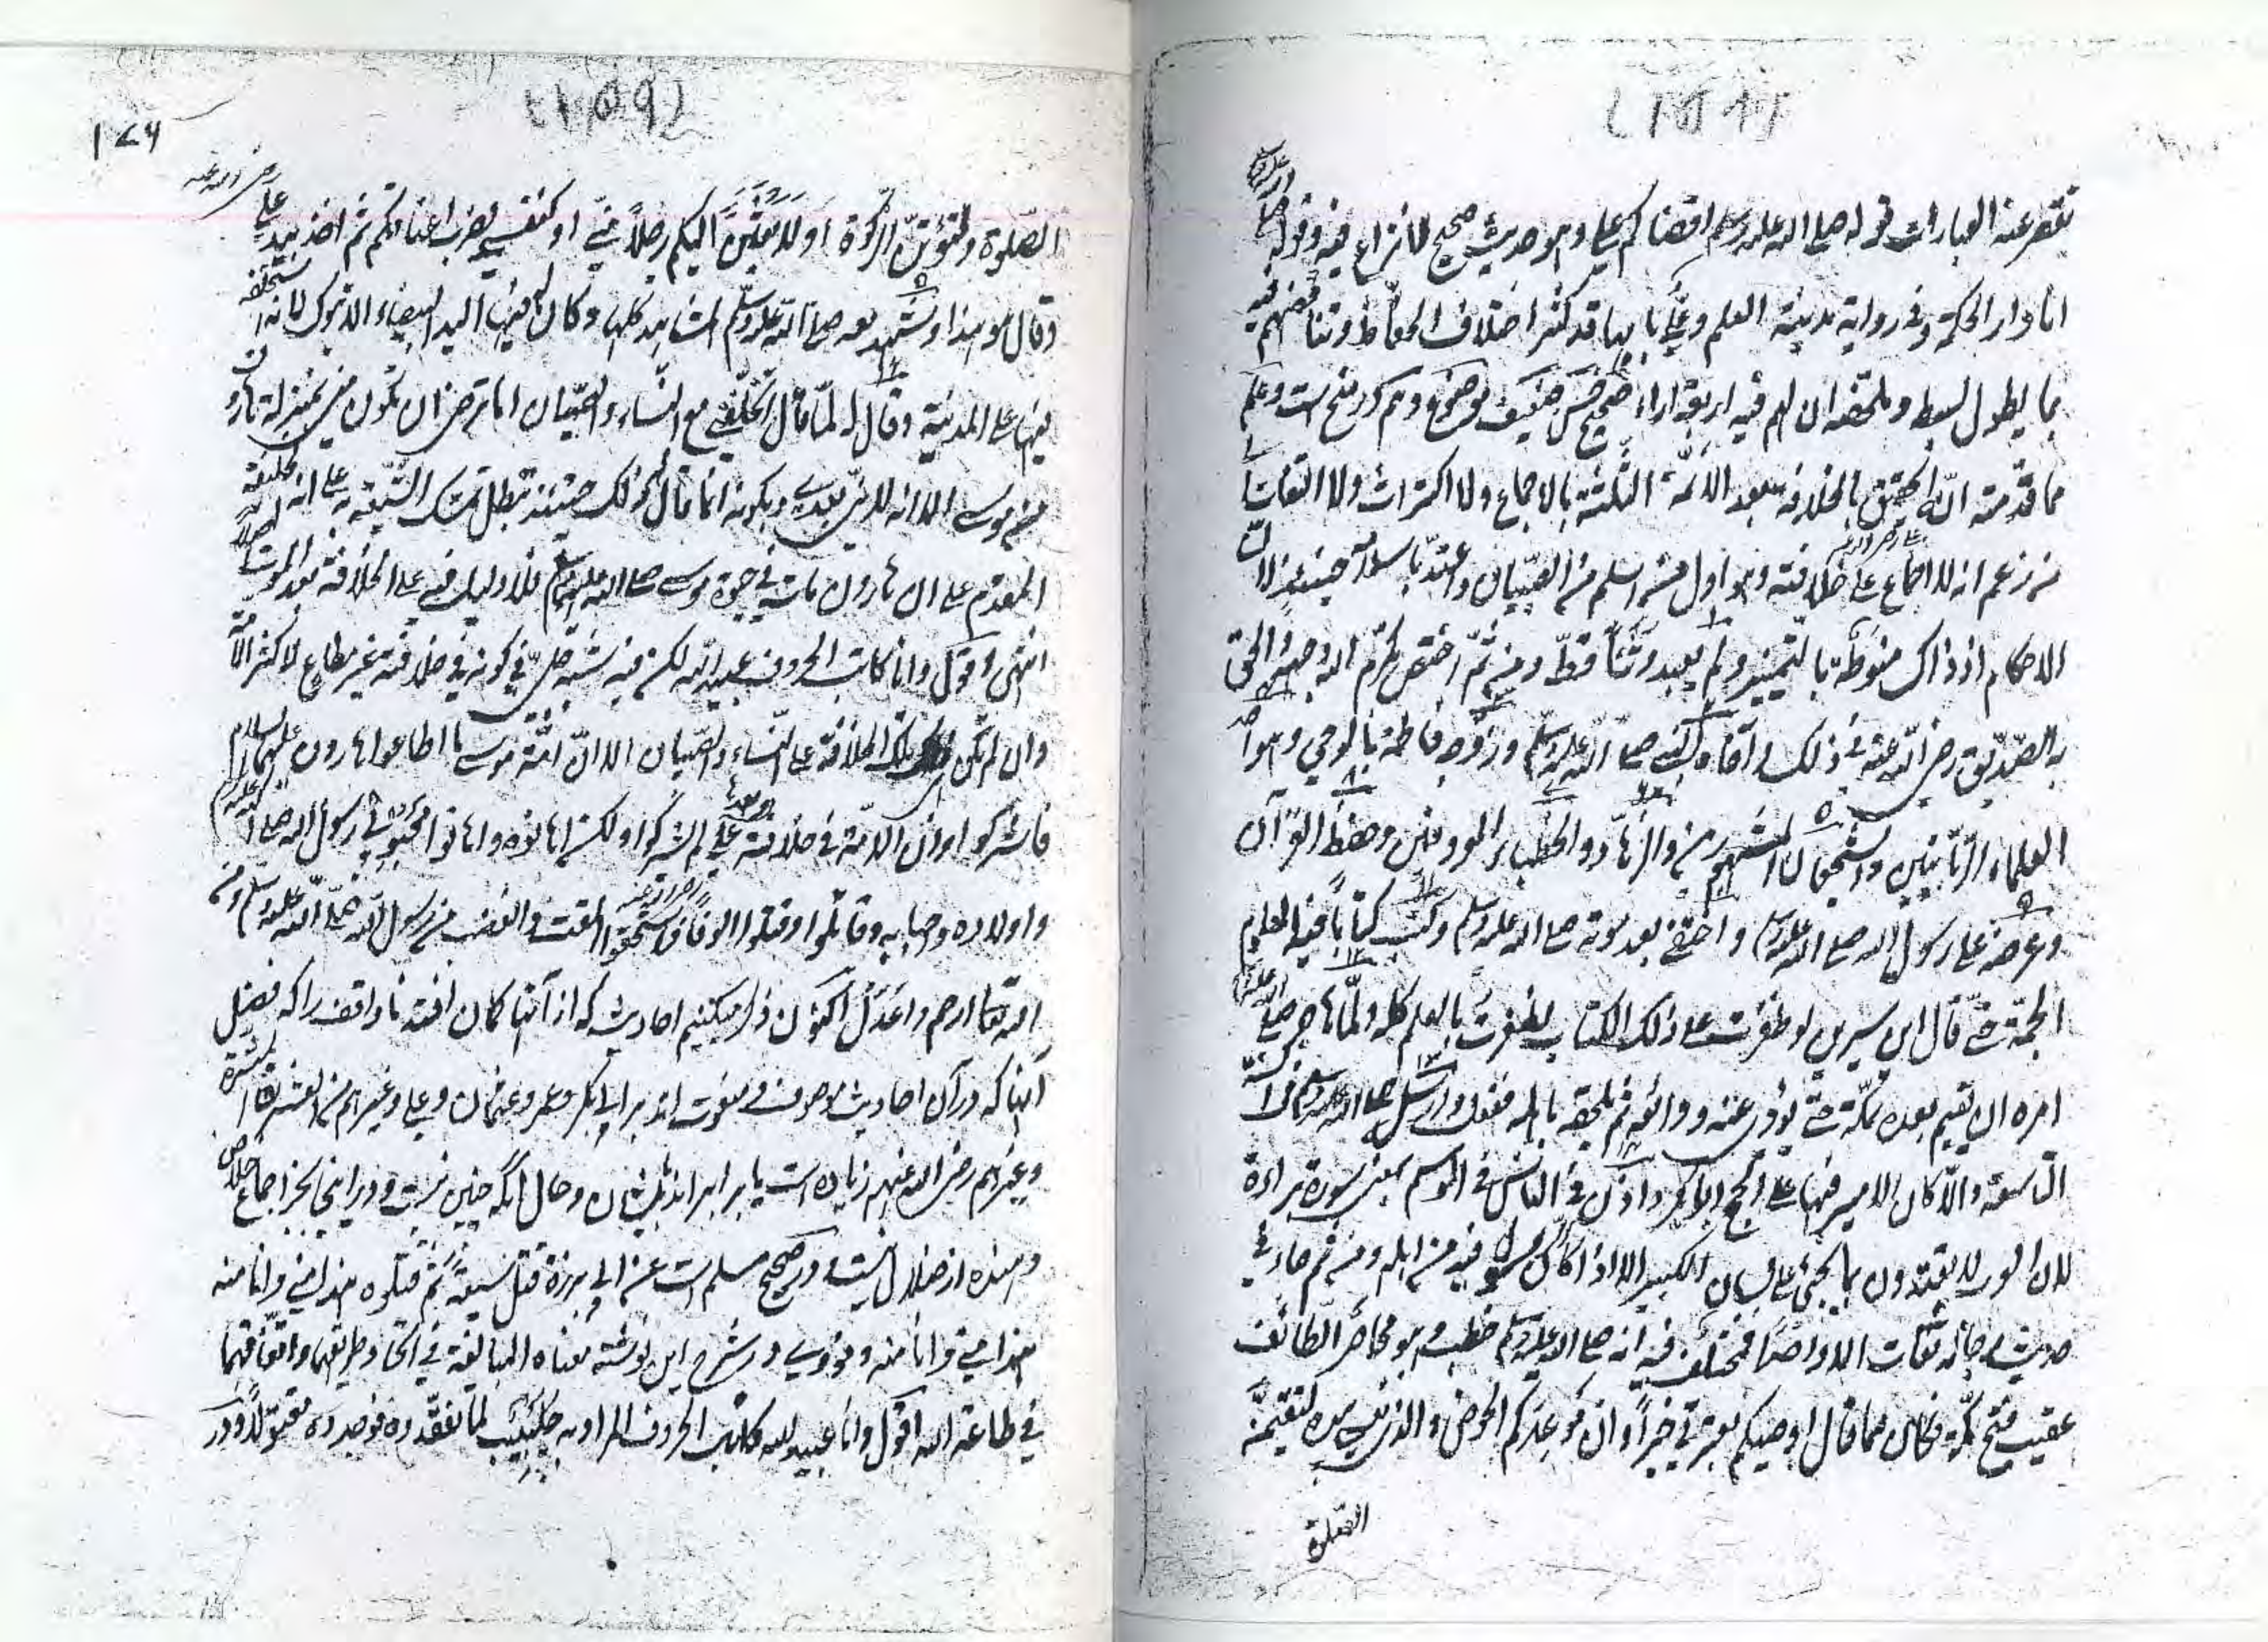 تقصر عنه العبارات قوله صلى الله عليه وسلم اقضاكم علي وهو حديث صحيح لا نزاع فيه وقوله صلى الله عليه وسلم
انا دار الحكمة وفي رواية مدينة العلم وعلي بابها قد كثر اختلاف الحفاظ وتناقضهم فيه
بما يطول بسطه وملخصه ان لهم فيه اربعة اراء صحيح حسن ضعيف موضوع وعلم
مما قدمته انه الحقيق بالخلافة بعد الائمة الثلثة بالاجماع ولا اكتراث ولا التفات
من زعم انه لا اجماع على خلافته وهو اول من اسلم من الصبيان واعتد باسلامه حينئذ لان
الاحكام اذ ذاك منوطة بالتمييز ولم يعبد وثنا قط ومن ثم اختص بكرم الله وجهه والحق
به الصديق رضي الله عنه في ذلك وآخاه النبي صلى الله عليه وسلم وزوجه فاطمة بالوحي وهو احد
العلماء الربانيين والشجعان المشهورين والزهاد والخطباء المعروفين وحفظ القرآن
وعرضه على رسول الله صلى الله عليه وسلم واختفى بعد موته صلى الله عليه وسلم وكتب كتابا فيه العلوم
الجمة حتى قال ابن سيرين لو ظفرت على ذلك الكتاب لظفرت بالعلم كله ولما هاجر صلى الله عليه وسلم
امره ان يقيم بعده بمكة حتى يؤدي عنه ودائعه ثم يلحقه باهله ففعل وارسله صلى الله عليه وسلم في السنة
التاسعة والا كان الامير فيها على الحج ابا بكر واذن في الناس في الموسم بعض سورة براءة
لان العرب لا يعتدون بما يجيء على لسان الكبير الا اذا كان الرسول فيه من اهله ومن ثم جاء في
حديث رجاله ثقات الا واحدا فمختلف فيه انه صلى الله عليه وسلم خطب وهو محاصر الطائف
عقيب فتح مكة فكان مما قال اوصيكم بعترتي خيرا وان موعدكم الحوض والذي نفسي بيده لتقيمن
الصلوة
١٧٦
الصلوة ولتؤتن الزكوة او لابعثن اليكم رجلا مني او كنفسي يضرب اعناقكم ثم اخذ بيد علي رضي الله عنه
وقال هو هذا وشهد معه صلى الله عليه وسلم المشاهد كلها وكان له فيها اليد البيضاء الا تبوك لانه استخلفه
فيها على المدينة وقال له لما قال اتخلفني مع النساء والصبيان اما ترضى ان تكون مني بمنزلة هارون
من موسى الا انه لا نبي بعدي وبكونه انما قال له ذلك حينئذ يبطل تمسك الشيعة به على انه الخليفة
المقدم على ان هارون مات في حيوة موسى صلى الله عليه وسلم فلا دليل فيه على الخلافة بعد الموت اصلا
انتهى واقول وانا كاتب الحروف عبيد الله لكن فيه شبه جلي في كونه في خلافته غير مطاع لاكثر الامة
وان لم تكن تلك الخلافة على النساء والصبيان الا ان امة موسى ما اطاعوا هارون عليهما السلام
فاشركوا وان الامة في خلافة علي لم يشركوا ولكن اهانوه واهانوا محبوبي رسول الله صلى الله عليه وسلم
واولاده واحبابه وقاتلوا وقتلوا الوفا فاستحقوا المقت والغضب من رسول الله صلى الله عليه وسلم ومن
الله تعالى ارحم واعدل اكنون ذكر ميكنيم احاديث كه از آنها كمان افتد ناواقف را كه فضل
آنها كه در آن احاديث موصوف ومنعوت اند بر ابي بكر وعمر وعثمان وعلي وغيرهم من العشرة المبشرة
وغيرهم رضي الله عنهم زياده است يا برابر اند بايشان وحال آنكه چنين نيست ودر اينجا بجز اجماع خلاص
دهنده از ضلال نيست ودر صحيح مسلم است عن ابي برزة قتل سبعة ثم قتلوه هذا مني وانا منه
هذا مني وانا منه ونووي در شرح اين نوشته معناه المبالغة في اتحاد طريقهما واتفاقهما
في طاعة الله اقول وانا عبيد الله كاتب الحروف المراد به جليبيب لما تفقدوه فوجدوه مقتولا ودر